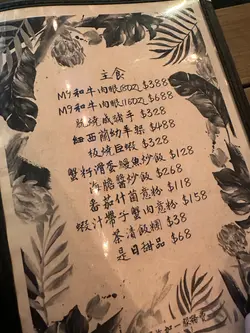 主食
M9和牛肉眼(8OZ) $388
M9和牛肉眼(16OZ) $688
脆燒咸豬手 $328
紐西蘭幼羊架 $488
板燒巨蝦 $328
蟹籽海膽鰻魚炒飯 $128
海膽醬炒飯 $268
番茄什菌意粉 $118
蝦汁帶子蟹肉意粉 $158
茶漬飯糰 $38
是日甜品 $68